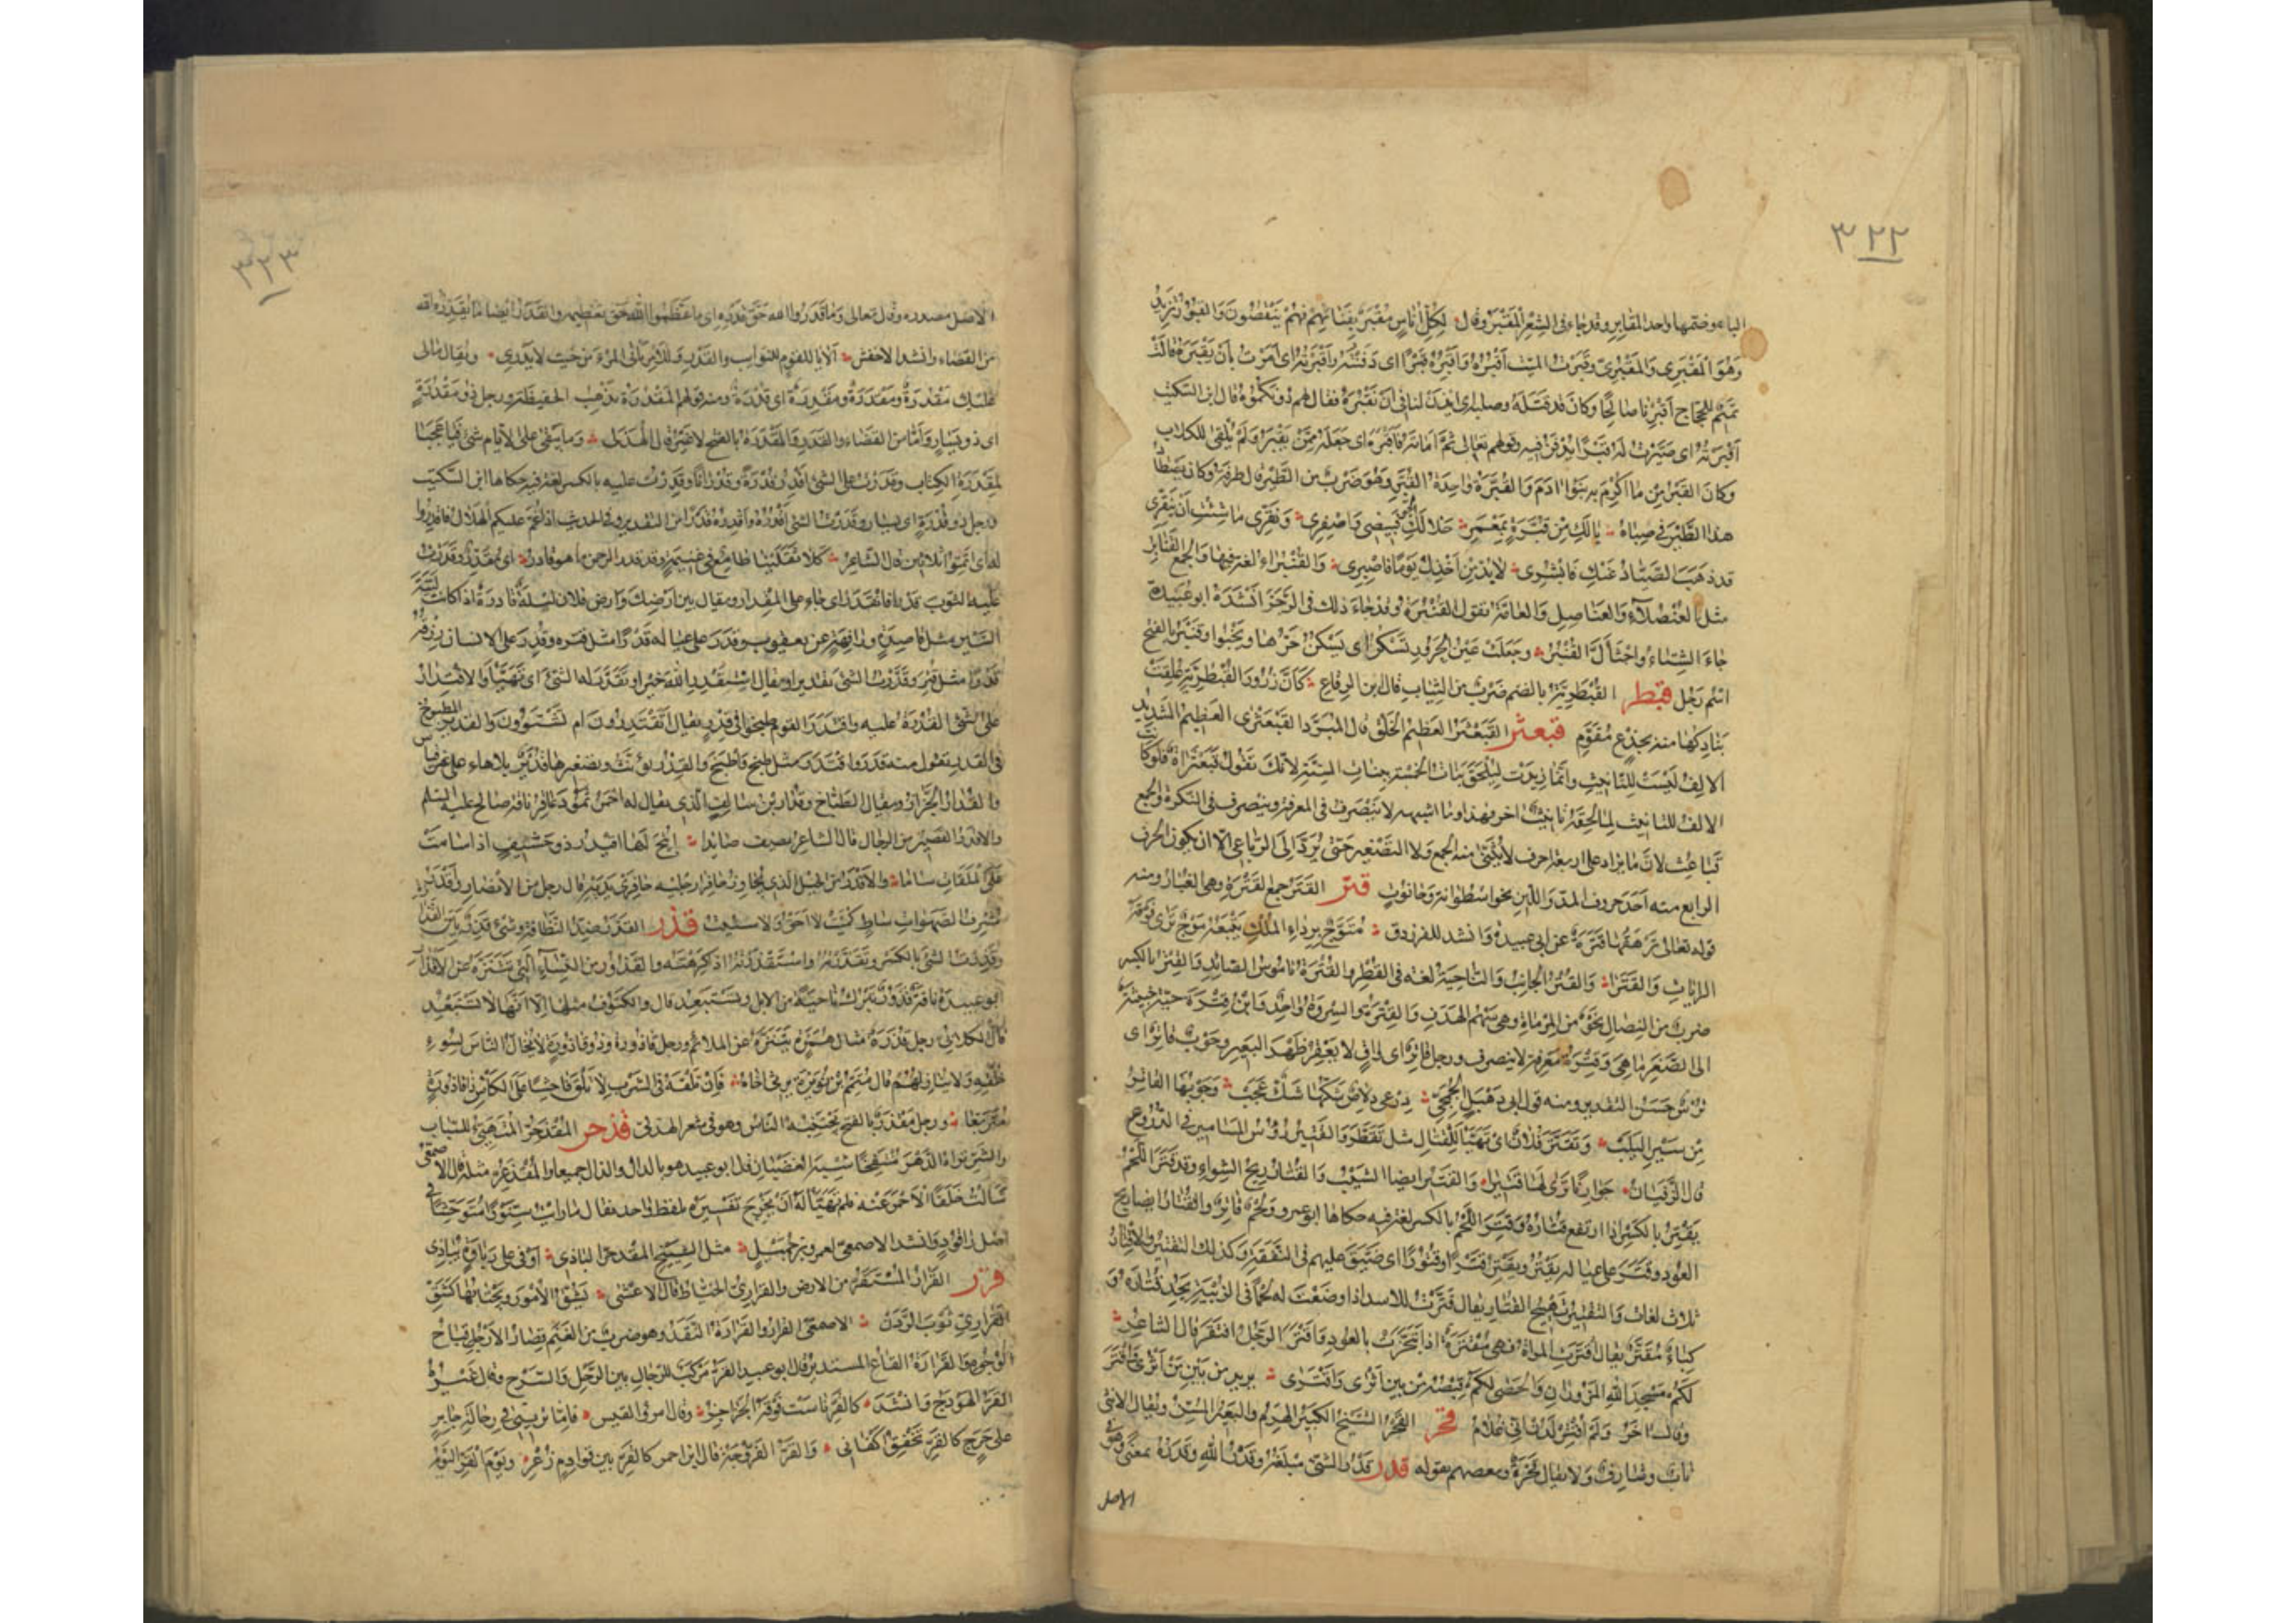 ٣٢٢
الباء وضمها واحد المقابر وقد جاء فى الشعر المَقْبَر وقال لكل أناس مقبر بفنائهم فهم ينقصون والقبور تزيد
وهو المَقْبَرى والمَقْبُرى وقبرت الميت أقبُره وأقبِره قبرا اى دفنته واقبرته اى امرت بأن يقبر قالت
تميم للحجاج أقبرنا صالحا وكان قد قتله وصلبه اى ايذن لنا فى أن نقبره فقال لهم دونكموه قال ابن السكيت
أقبرته اى صيرت له قبرا يدفن فيه وقولهم تعالى ثم أماته فأقبره اى جعله ممن يقبر ولم يلقى للكلاب
وكان القبر مما اكرم به بنوا ادم والقبّرة واحدة القبّر وهو ضرب من الطير قال طرفة وكان يصطاد
هذا الطير فى صباه يا لك من قبّرة بمعمر خلا لك الجو فبيضى واصفرى ونقّرى ما شئت أن تنقّرى
قد ذهب الصياد عنك فابشرى لا بد من أخذك يوما فاصبرى والقنبراء لغة فيها والجمع القنابر
مثل العنصلاء والعناصل والعامة تقول القنبرة وقد جاء ذلك فى الرجز انشده ابو عبيدة
جاء الشتاء واجثأل القنبر وجعلت عين الحرور تسكر اى يسكن حرها ويخبوا وقنبر بالفتح
اسم رجل قبطر القُبطرية بالضم ضرب من الثياب قال ابن الرقاع كأن زرور القبطرية علقت
بنادكها منه بجذع مقوّم قبعثر القبعثر العظيم الخلق قال المبرد القبعثرى العظيم الشديد
الالف ليست للتانيث وانما زيدت لتلحق بنات الخمسة ببنات الستة لأنك تقول قبعثراة فلو كانت
الالف للتانيث لما لحقه تانيث اخر فهذا وما اشبهه لا ينصرف فى المعرفة وينصرف فى النكرة والجمع
قباعث لان ما زاد على اربعة احرف لا يبنى منه الجمع ولا التصغير حتى يرد الى الرباعى الا ان يكون الحرف
الرابع منه أحد حروف المد واللين نحو اسطوانة وحانوت قتر القتر جمع القترة وهى الغبار ومنه
قوله تعالى ترهقها قترة عن ابى عبيدة وانشد للفرزدق متوج برداء الملك يتبعه موج ترى فوقه
الرايات والقترا والقتر الجانب والناحية لغة فى القطر والقترة ناموس الصائد والقتر بالكسر
ضرب من النصال نحو من المرماة وهى سهم الهدف والقترة والسروة واحد وابن قترة حية خبيثة
الى الصغر ما هى وقترة معرفة لا ينصرف ورجل قاتر اى واق لا يعقر ظهر البعير وجوب قاتر اى
ترس حسن التقدير ومنه قول ابى دهبل الجمحى درعى دلاص شكها شك عجب وجوبها القاتر
من سير اليلب وتقتر فلان اى تهيأ للقتال مثل تقطر والقتير رؤس المسامير فى الدروع
قال الزفيان جوارنا ترى لها قتيرا والقتير ايضا الشيب والقتار ريح الشواء وقد قتر اللحم
يقتر بالكسر اذا ارتفع قتاره وقتر اللحم بالكسر لغة فيه حكاها ابو عمرو ولحم قاتر والقتار ايضا ريح
العود وقتر على عياله يقتر ويقتر قترا وقتورا اى ضيق عليهم فى النفقة وكذلك التقتير والاقتار
ثلاث لغات والتقتير تهييج القتار يقال قترت للاسد اذا وضعت له لحما فى الزبية يجد قتاره و
كباء مقتر يقال أقترت المراة فهى مقترة اذا تبخرت بالعود واقتر الرجل افتقر قال الشاعر
لكم مسجد الله المزوران والحصى لكم قبصه من بين أثرى واقترى يريد من بين من أثرى واقتر
وقال اخر ولم أقتر لدن أنى غلام قحر القحر الشيخ الكبير الهرم والبعير المسن ويقال لأنثى
ناب وشارف ولا يقال قحرة وبعضهم يقوله قدر قدر الشئ مبلغه وقدر الله وقدره بمعنى وهو فى
الاصل
٣٢٣
الاصل مصدر وقال تعالى وما قدروا الله حق قدره اى ما عظموا الله حق تعظيمه والقدر ايضا ما يقدره الله
من القضاء وانشد الاخفش ألا يا لقوم للنوايب والقدر وللامر ياتى المرء من حيث لا يدرى ويقال مالى
عليك مقدرة ومقدرة ومقدرة اى قدرة ومنه قولهم المقدرة تذهب الحفيظة ورجل ذو مقدرة
اى ذو يسار واما من القضاء والقدر فالمقدرة بالفتح لا غير قال الهذلى وما يبقى على الايام شئ فيا عجبا
لمقدرة الكتاب وقدرت على الشئ اقدر قدرة وقدرانا وقدرت عليه بالكسر لغة فيه حكاها ابن السكيت
ورجل ذو قدرة اى يسار وقدرت الشئ أقدره وأقدره قدرا من التقدير وفى الحديث اذا غم عليكم الهلال فاقدروا
له اى تمّوا ثلاثين قال الشاعر كلا ثقلينا طامع فى غنيمة وقد قدر الرحمن ما هو قادر اى مقدر وقدرت
عليه الثوب قدرا فانقدر اى جاء على المقدار ويقال بين ارضك وارض فلان ليلة قادرة اذا كانت لينة
السير مثل قاصدة ورافهة عن يعقوب وقدر على عياله قدرا مثل قتر وقدر على الانسان رزقه
قدرا مثل قتر وقدرت الشئ تقديرا ويقال استقدر الله خيرا وتقدر له الشئ اى تهيأ والاقتدار
على الشئ القدرة عليه واقتدر القوم طبخوا فى قدر يقال اتقتدرون ام تشتوون والقدير المطبوخ
فى القدر تقول منه قدر واقتدر مثل طبخ واطبخ والقدر يؤنث وتصغيرها قدير بلا هاء على غير قياس
والقدار الجزار ويقال الطباخ وقدار بن سالف الذى يقال له احمر ثمود عاقر ناقة صالح عليه السلم
والاقدر القصير من الرجال قال الشاعر يصف صائدا اتيح لها اقيدر ذو حشيف اذا سامت
على الملقات ساما والاقدر من الخيل الذى يجاوز حافرا رجليه حافرى يديه قال رجل من الانصار واقدر
مشرف الصهوات ساط كميت لا احق ولا شئيت قذر القذر ضد النظافة وشئ قذر بين القذارة
وقذرت الشئ بالكسر وتقذرته واستقذرته اذا كرهته والقذور من النساء التى تتنزه عن الاقذار
ابو عبيدة ناقة قذور تبرك ناحية من الابل وتستبعد قال والكنوف مثلها الا انها لا تستبعد
قال الكلابى رجل قذرة مثال همزة يتنزه عن الملائم ورجل قاذورة وذو قاذورة لا يخال الناس لسوء
خلقه ولا ينازلهم قال متمم بن نويرة يرثى اخاه فان تلقه فى الشرب لا تلق فاحشا على الكأس ذا قاذورة
متربعا ورجل مقذر بالفتح يجتنبه الناس وهو فى شعر الهذلى قذحر المقذحر المتهيئ للسباب
والشر تراه الدهر منتفخا شبيه الغضبان قال ابو عبيد هو بالدال والذال جميعا والمقذعر مثله قال الاصمعى
سألت خلفا الاحمر عنه فلم يتهيأ له أن يخرج تفسيره بلفظ واحد فقال اما رايت سنورا متوحشا فى
اصل راقود وانشد الاصمعى لعمرو بن جميل مثل الشييخ المقذحر الباذى اوفى على رباوة يباذى
قرر القرار المستقر من الارض والقرارى الخياط قال الاعشى يشق الأمور ويجتابها كشق
القرارى ثوب الردن الاصمعى القرار والقرارة النقد وهو ضرب من الغنم قصار الارجل قباح
الوجوه والقرارة القاع المستدير قال ابو عبيد القر مركب للرجال بين الرحل والسرج وقال غيره
القر الهودج وانشد كالقر ناست فوقه الجزاجز وقال امرؤ القيس فاما ترينى فى رحالة جابر
على حرج كالقر تخفق أكفانى والقر الفروجة قال ابن احمر كالقر بين قوادم زعر ويوم القر اليوم